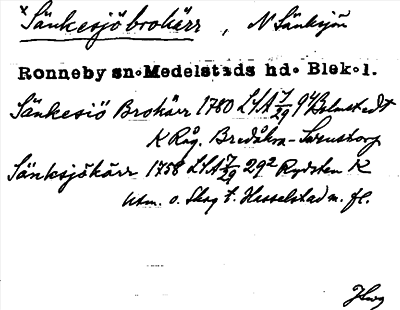 × Sänkesjö brokärr, N Sänksjön
Ronneby sn. Medelstads hd. Blek. l.
Sänkesiö Brokärr 1780 LSA 7/29 94 Belmstedt
K Råg. Bredåkra - Svenstorp
Sänksjökärr 1758 LSA 7/29 29² Rydsten K
Utm. o. Skog t. Hesselstad m. fl.